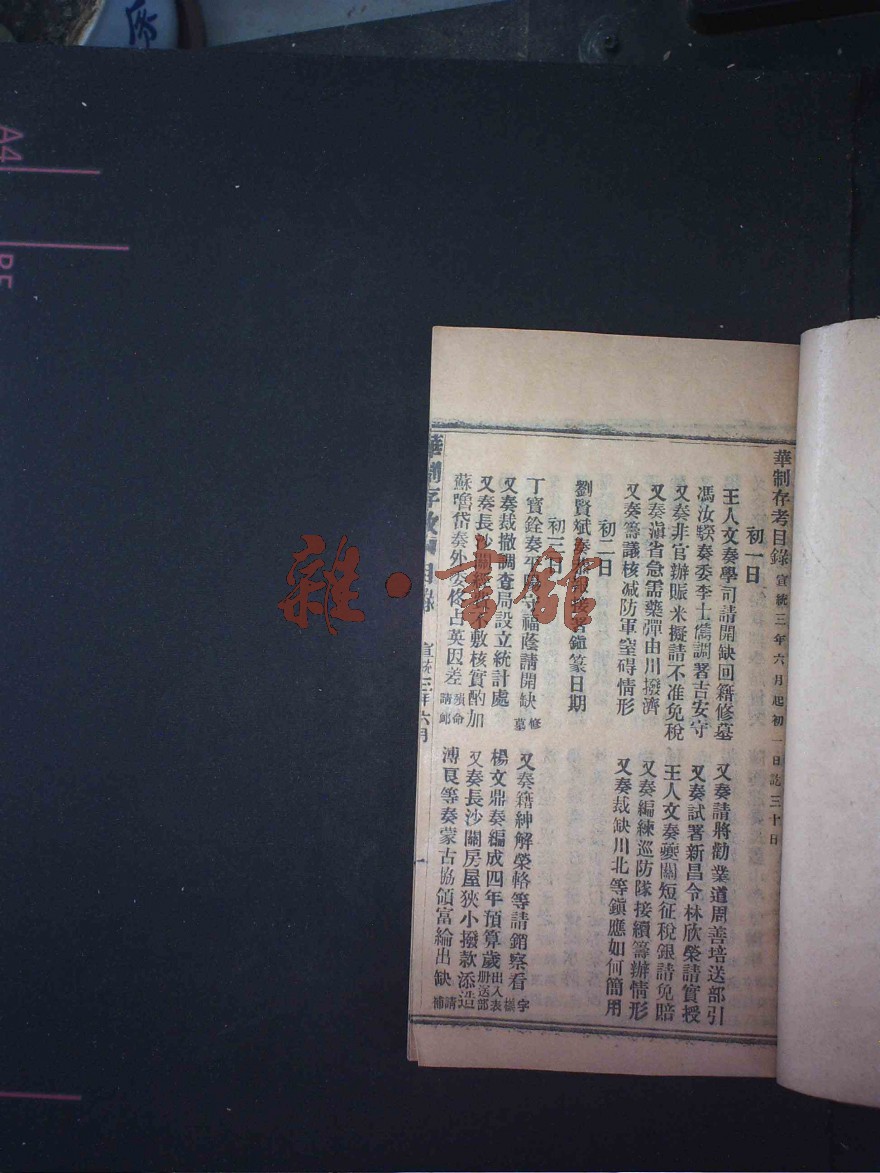 華制存考目錄 宣統三年六月起初一日訖三十日
初一日
王人文奏學司請開缺回籍修墓
又奏請將勸業道周善培送部引
馮汝騤奏委李士儁調署吉安守
又奏試署新昌令林欣榮請實授
又奏非官辦賑米擬請不准免稅
王人文奏夔關短征稅銀請免賠
又奏滇省急需藥彈由川撥濟
又奏編練巡防隊接續籌辦情形
又奏籌議核減防軍窒碍情形
又奏裁缺川北等鎭應如何簡用
初二日
劉賢斌奏 接署鎭篆日期
初三日
丁寶銓奏平陽守福蔭請開缺修墓
又奏籍紳解榮輅等請銷察看字樣
又奏裁撤調查局設立統計處
楊文鼎奏編成四年預算歲出入表册送部
又奏長沙關 不敷核實酌加
又奏長沙關房屋狹小撥款添造
蘇嚕岱奏外委佟占英因差殞命請卹
溥良等奏蒙古協領富綸出缺請補
華制存攷 目錄 宣統三年六月 一
雜·書館
A4
B5